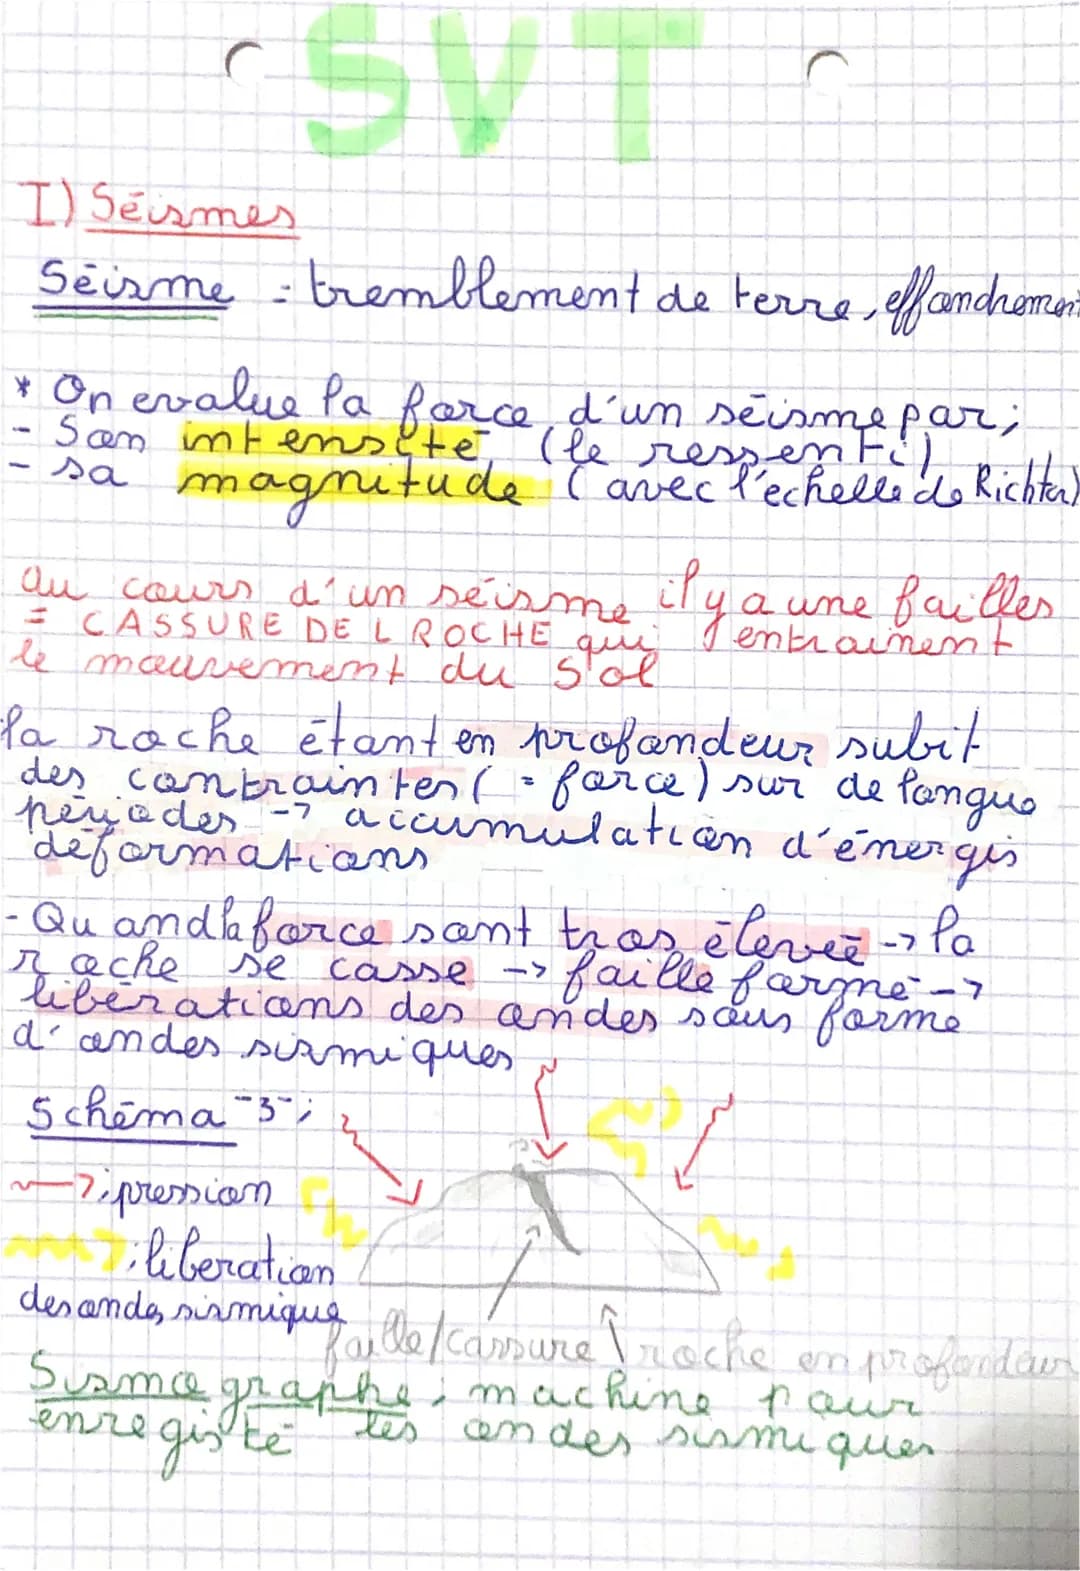 SVT
I) Séismes
Séisme : tremblement de terre, effondrement
* On evalue la force d'un séisme par ;
- Son intensité (le ressenti)
- sa magnitude (avec l'echelle de Richter)
au cours d'un séisme il y a une failles
= CASSURE DE L ROCHE qui entrainent
le mouvement du sol
la roche étant en profondeur subit
des contraintes ( = force) sur de longue
périodes -> accumulation d'énergis
déformations
- Quand la force sont tros éleveé -> la
roche se casse -> faille formé ->
libérations des ondes sous forme
d'ondes sismiques
Schéma -3- ;
: pression
: liberation
des ondes sismique
faille/cassure roche en profondeur
Sismographe : machine pour
enregisté les ondes sismiques